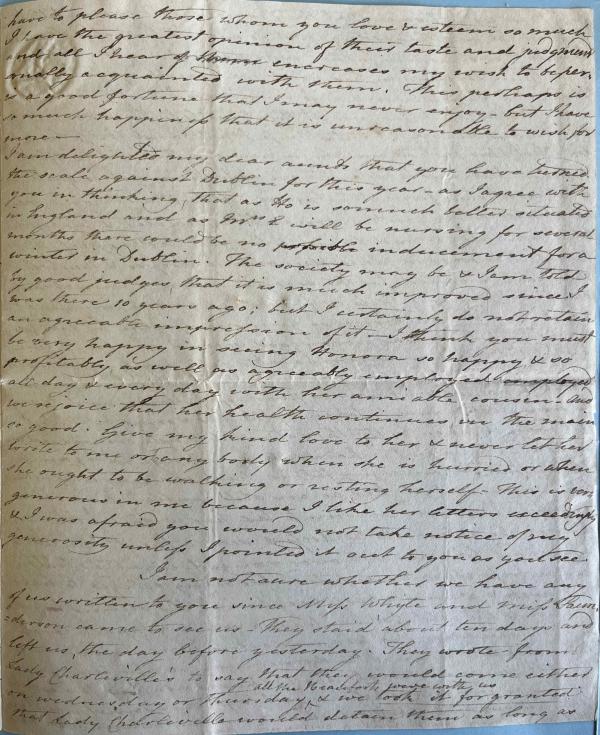 have to please those whom you love & esteem so much
I have the greatest opinion of their taste and judgment
and all I hear of them encreases my wish to be per-
sonally acquainted with them. This perhaps is
is a good fortune that I may never enjoy - but I have
so much happiness that it is unreasonable to wish for
more -
I am delighted my dear aunt that you have turned
the scale against Dublin for this year - as I agree with
you in thinking, that as Ho is so much better situated
in England and as Mrs E will be nursing for several
months there could be no possible inducement for a
winter in Dublin. The society may be & I am told
by good judges that it is much improved since I
was there 10 years ago; but I certainly do not retain
an agreeable impression of it - I think you must
be very happy in seeing Honora so happy & so
profitably as well as agreeably employed employed
all day & every day with her amiable cousin and
we rejoice that her health continues in the main
so good. Give my kind love to her & never let her
write to me or any body when she is hurried or when
she ought to be walking or resting herself - This is very
generous in me because I like her letters exceedingly
& I was afraid you would not take notice of my
generosity unless I pointed it out to you as you see
I am not sure whether we have any
of us written to you since Miss Whyte and Miss Saun
=derson came to see us - They staid about ten days and
left us, the day before yesterday. They wrote from
Lady Charleville's to say that they would come either
all the were with us
on wednesday or Thursday, & we took it for granted
that Lady Charleville would detain them as long as